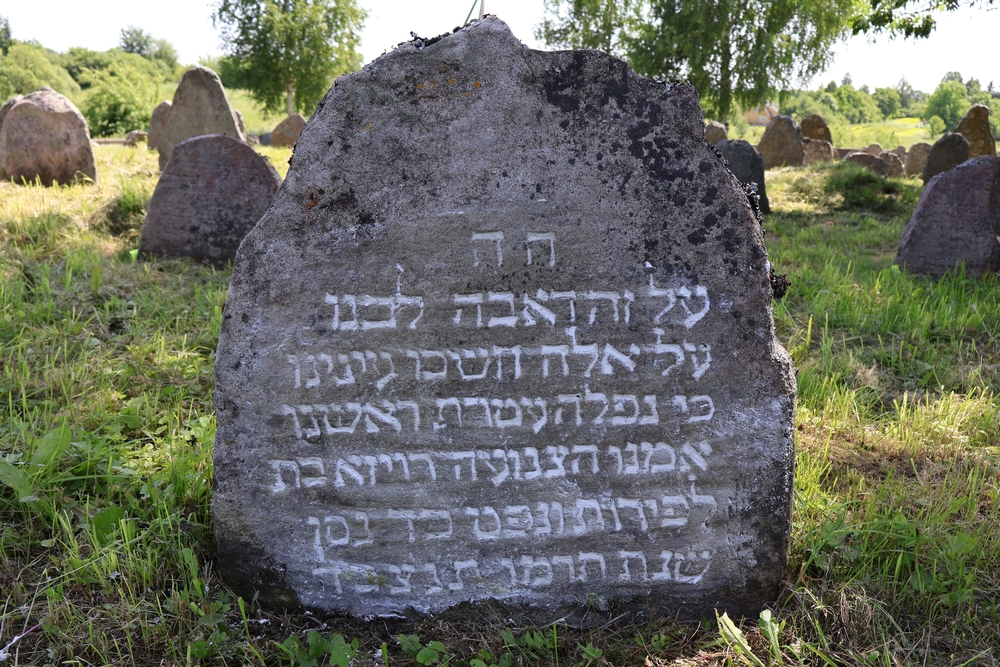 ח ה
על זה דאבה לבנו
על אלה חשכו עינינו
כי נפלה עטרת ראשנו
אמנו הצנועה רויזא בת
לפירות ונפט כד נסן
שנת תרמו ת נ צ ב ה